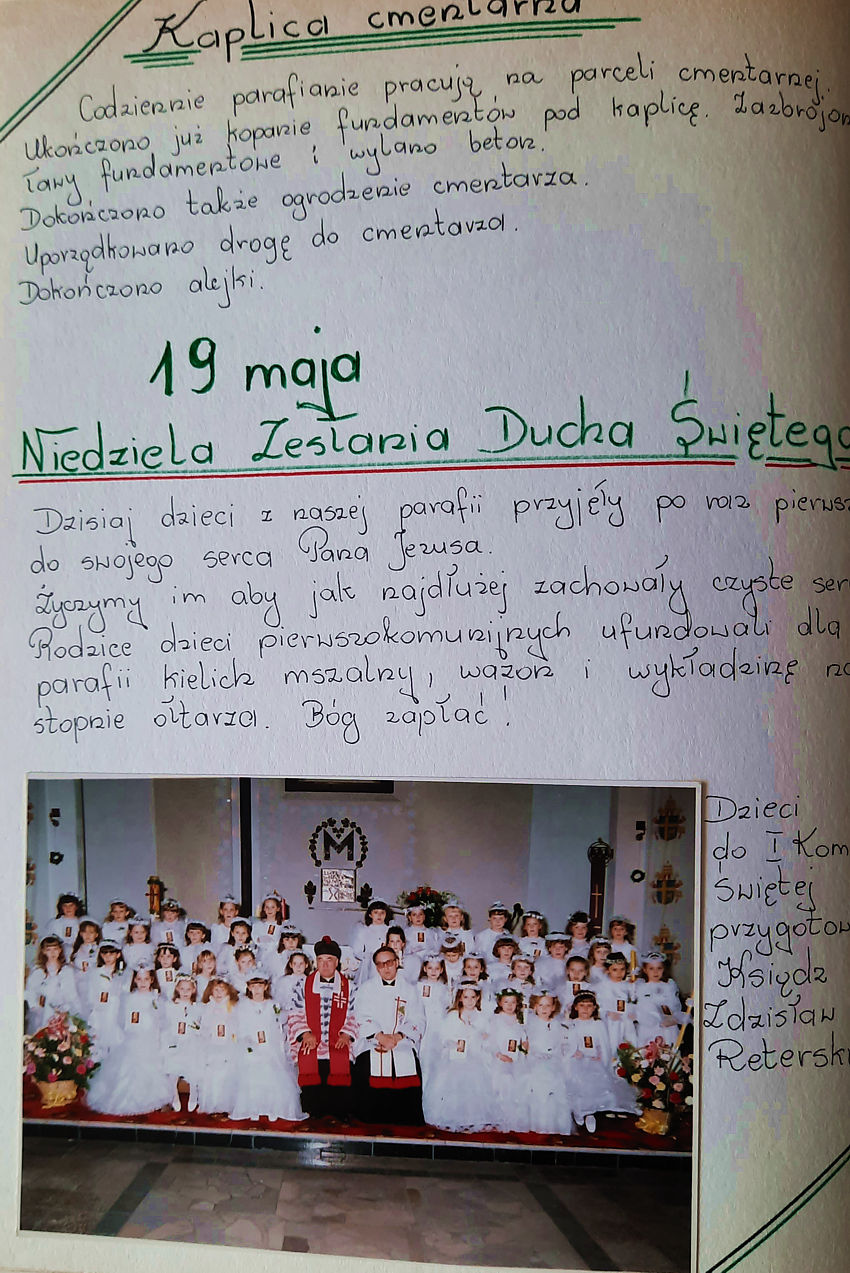 Kaplica cmentarna
Codziennie parafianie pracują na parceli cmentarnej.
Ukończono już kopanie fundamentów pod kaplicę. Zazbrojon
ławy fundamentowe i wylano beton.
Dokończono także ogrodzenie cmentarza.
Uporządkowano drogę do cmentarza.
Dokończono alejki.
19 maja
Niedziela Zesłania Ducha Świętego
Dzisiaj dzieci z naszej parafii przyjęły po raz pierwsz
do swojego serca Pana Jezusa.
Życzymy im aby jak najdłużej zachowały czyste ser
Rodzice dzieci pierwszokomunijnych ufundowali dla
parafii kielich mszalny, wazon i wykładzinę na
stopnie ołtarza. Bóg zapłać!
Dzieci
do I Kom
Świętej
przygotow
Ksiądz
Zdzisław
Reterski
M